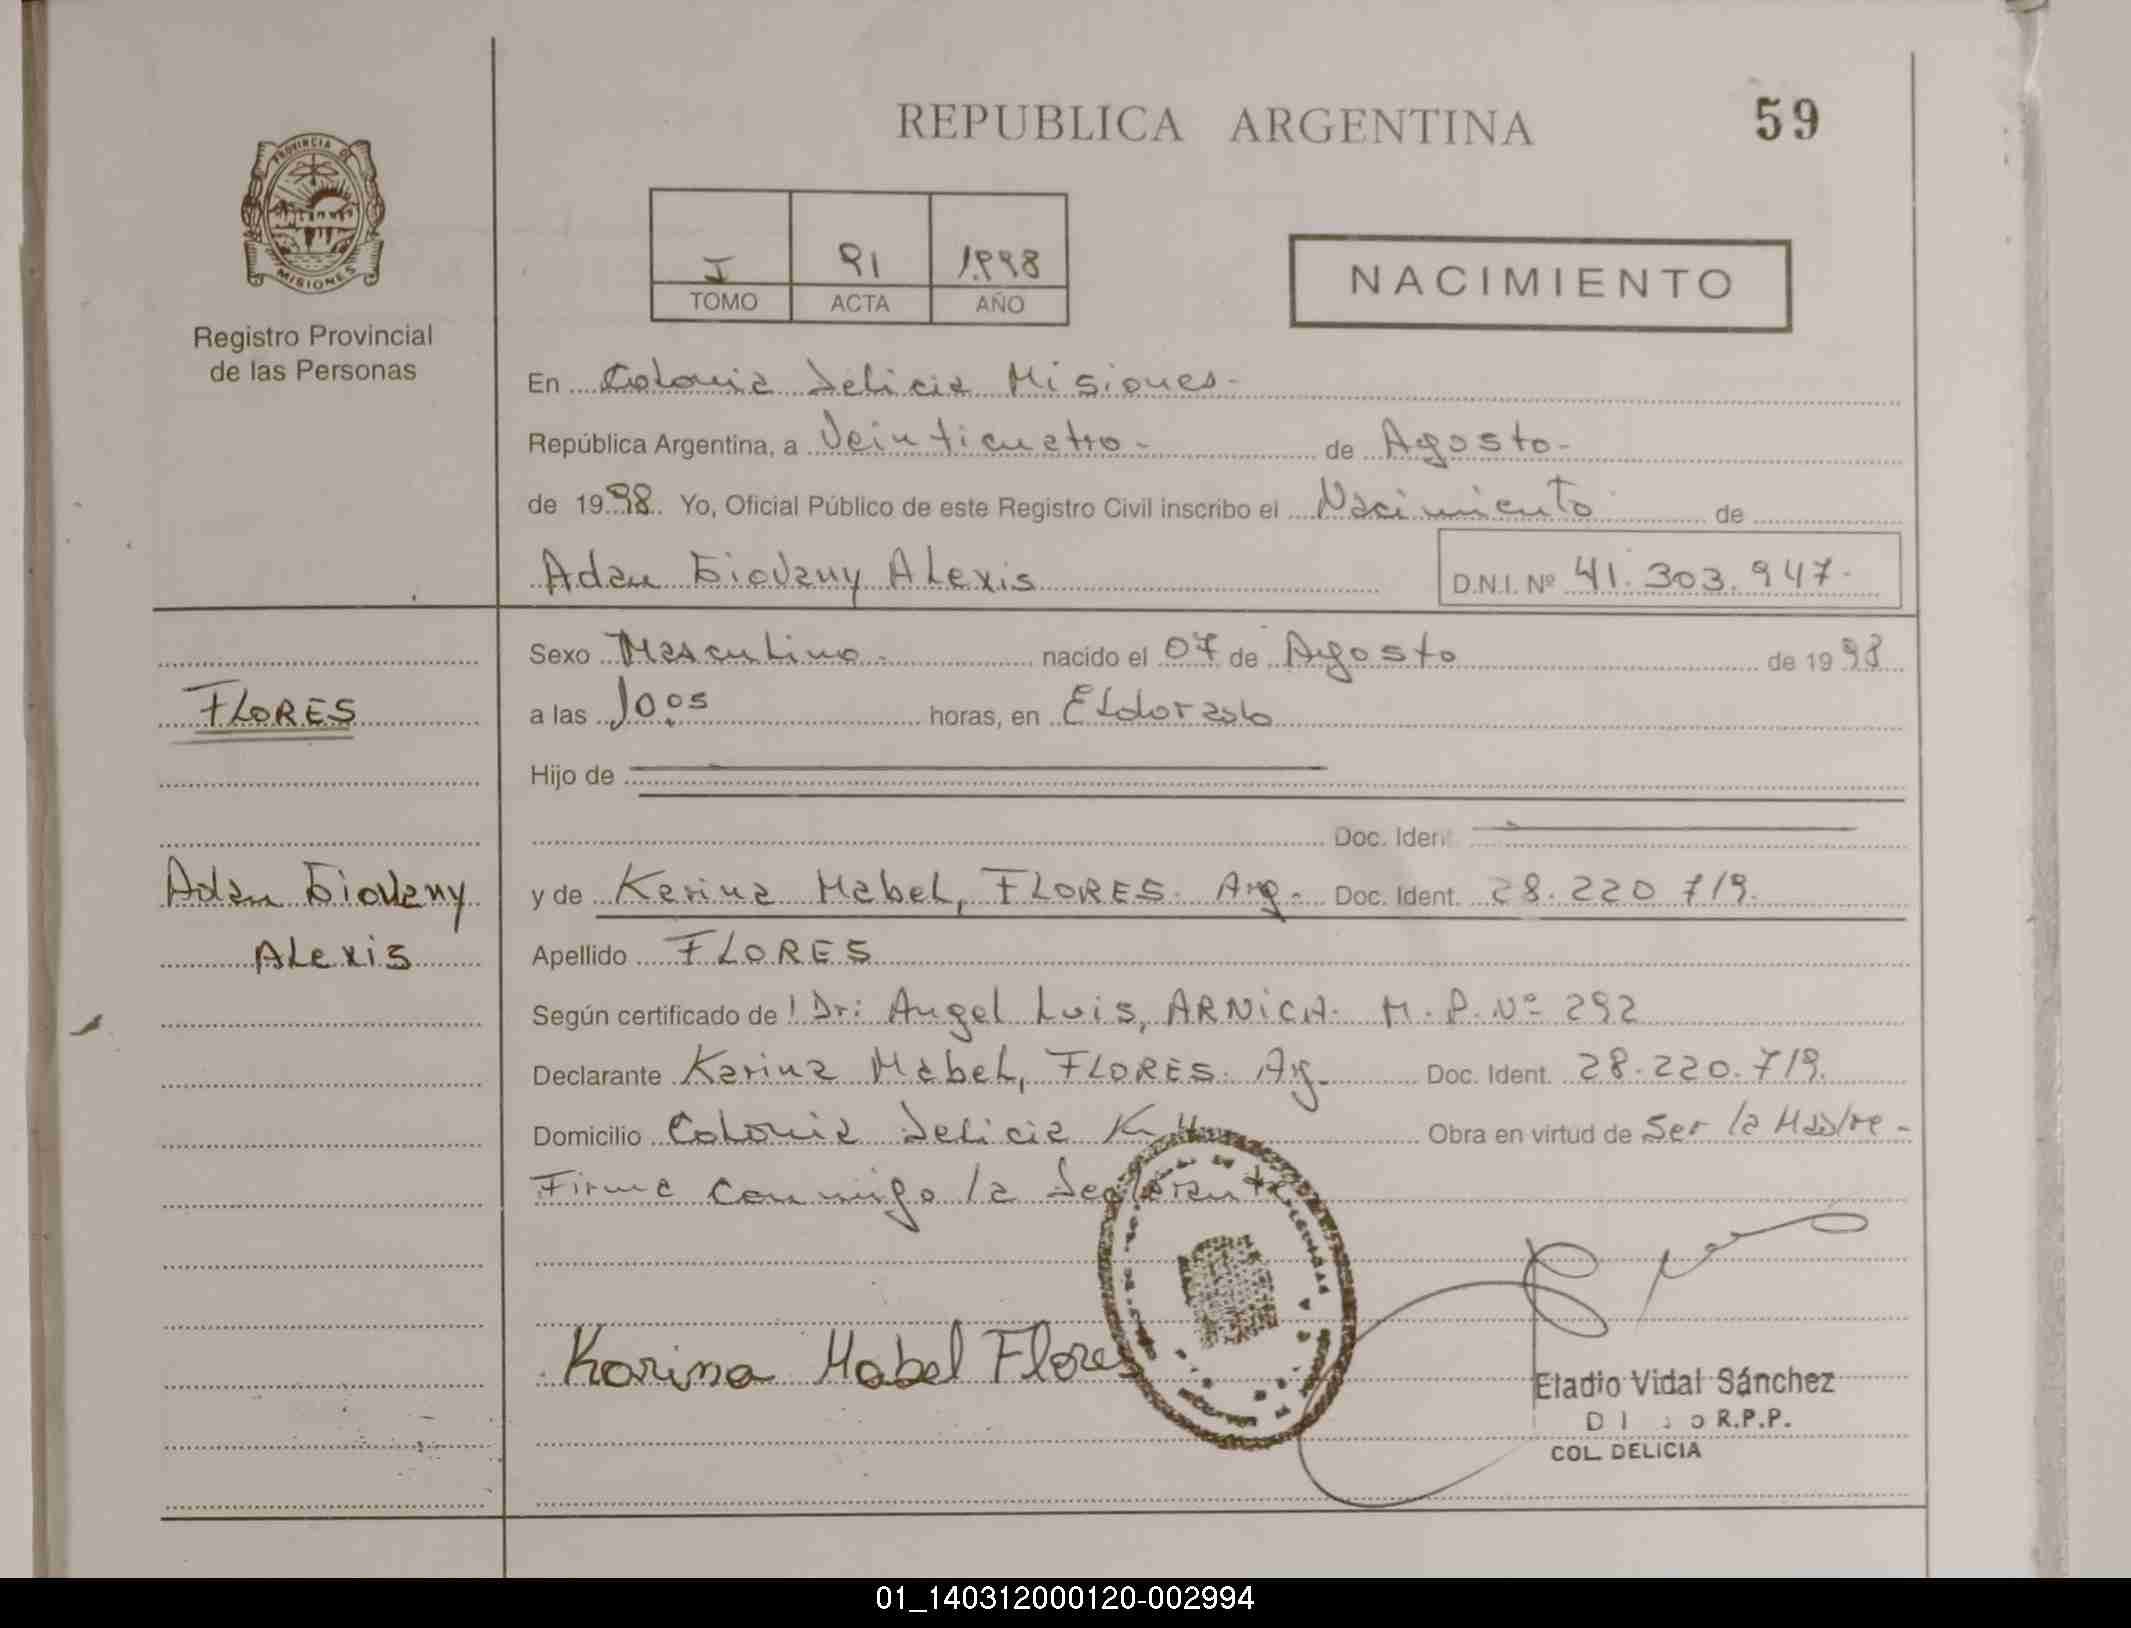 REPUBLICA ARGENTINA
59
PROVINCIA DE
MISIONES
Registro Provincial
de las Personas
I 91 1.998
TOMO ACTA AÑO
NACIMIENTO
En Colonia Delicia Misiones.-
República Argentina, a Veinticuatro.- de Agosto.-
de 1998. Yo, Oficial Público de este Registro Civil inscribo el Nacimiento de
Adan Giovany Alexis D.N.I. Nº 41.303.947.-
Sexo Masculino.- nacido el 07 de Agosto de 1998
FLORES
a las 10:05 horas, en Eldorado
Hijo de
Doc. Ident
Adan Giovany
y de Karina Mabel, FLORES. Arg.- Doc. Ident. 28.220.719.
Alexis
Apellido FLORES
Según certificado de Dr: Angel Luis, ARNICA. M.P.Nº 292
Declarante Karina Mabel, FLORES. Arg.- Doc. Ident. 28.220.719.
Domicilio Colonia Delicia Obra en virtud de Ser la Madre.-
Firma conmigo la Declarante
Karina Mabel Flores
Eladio Vidal Sánchez
R.P.P.
COL. DELICIA
01_140312000120-002994